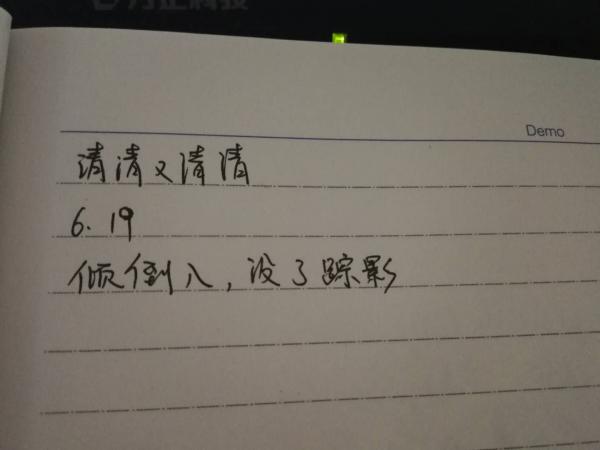 Demo
清清又清清
6.19
倾倒入，没了踪影